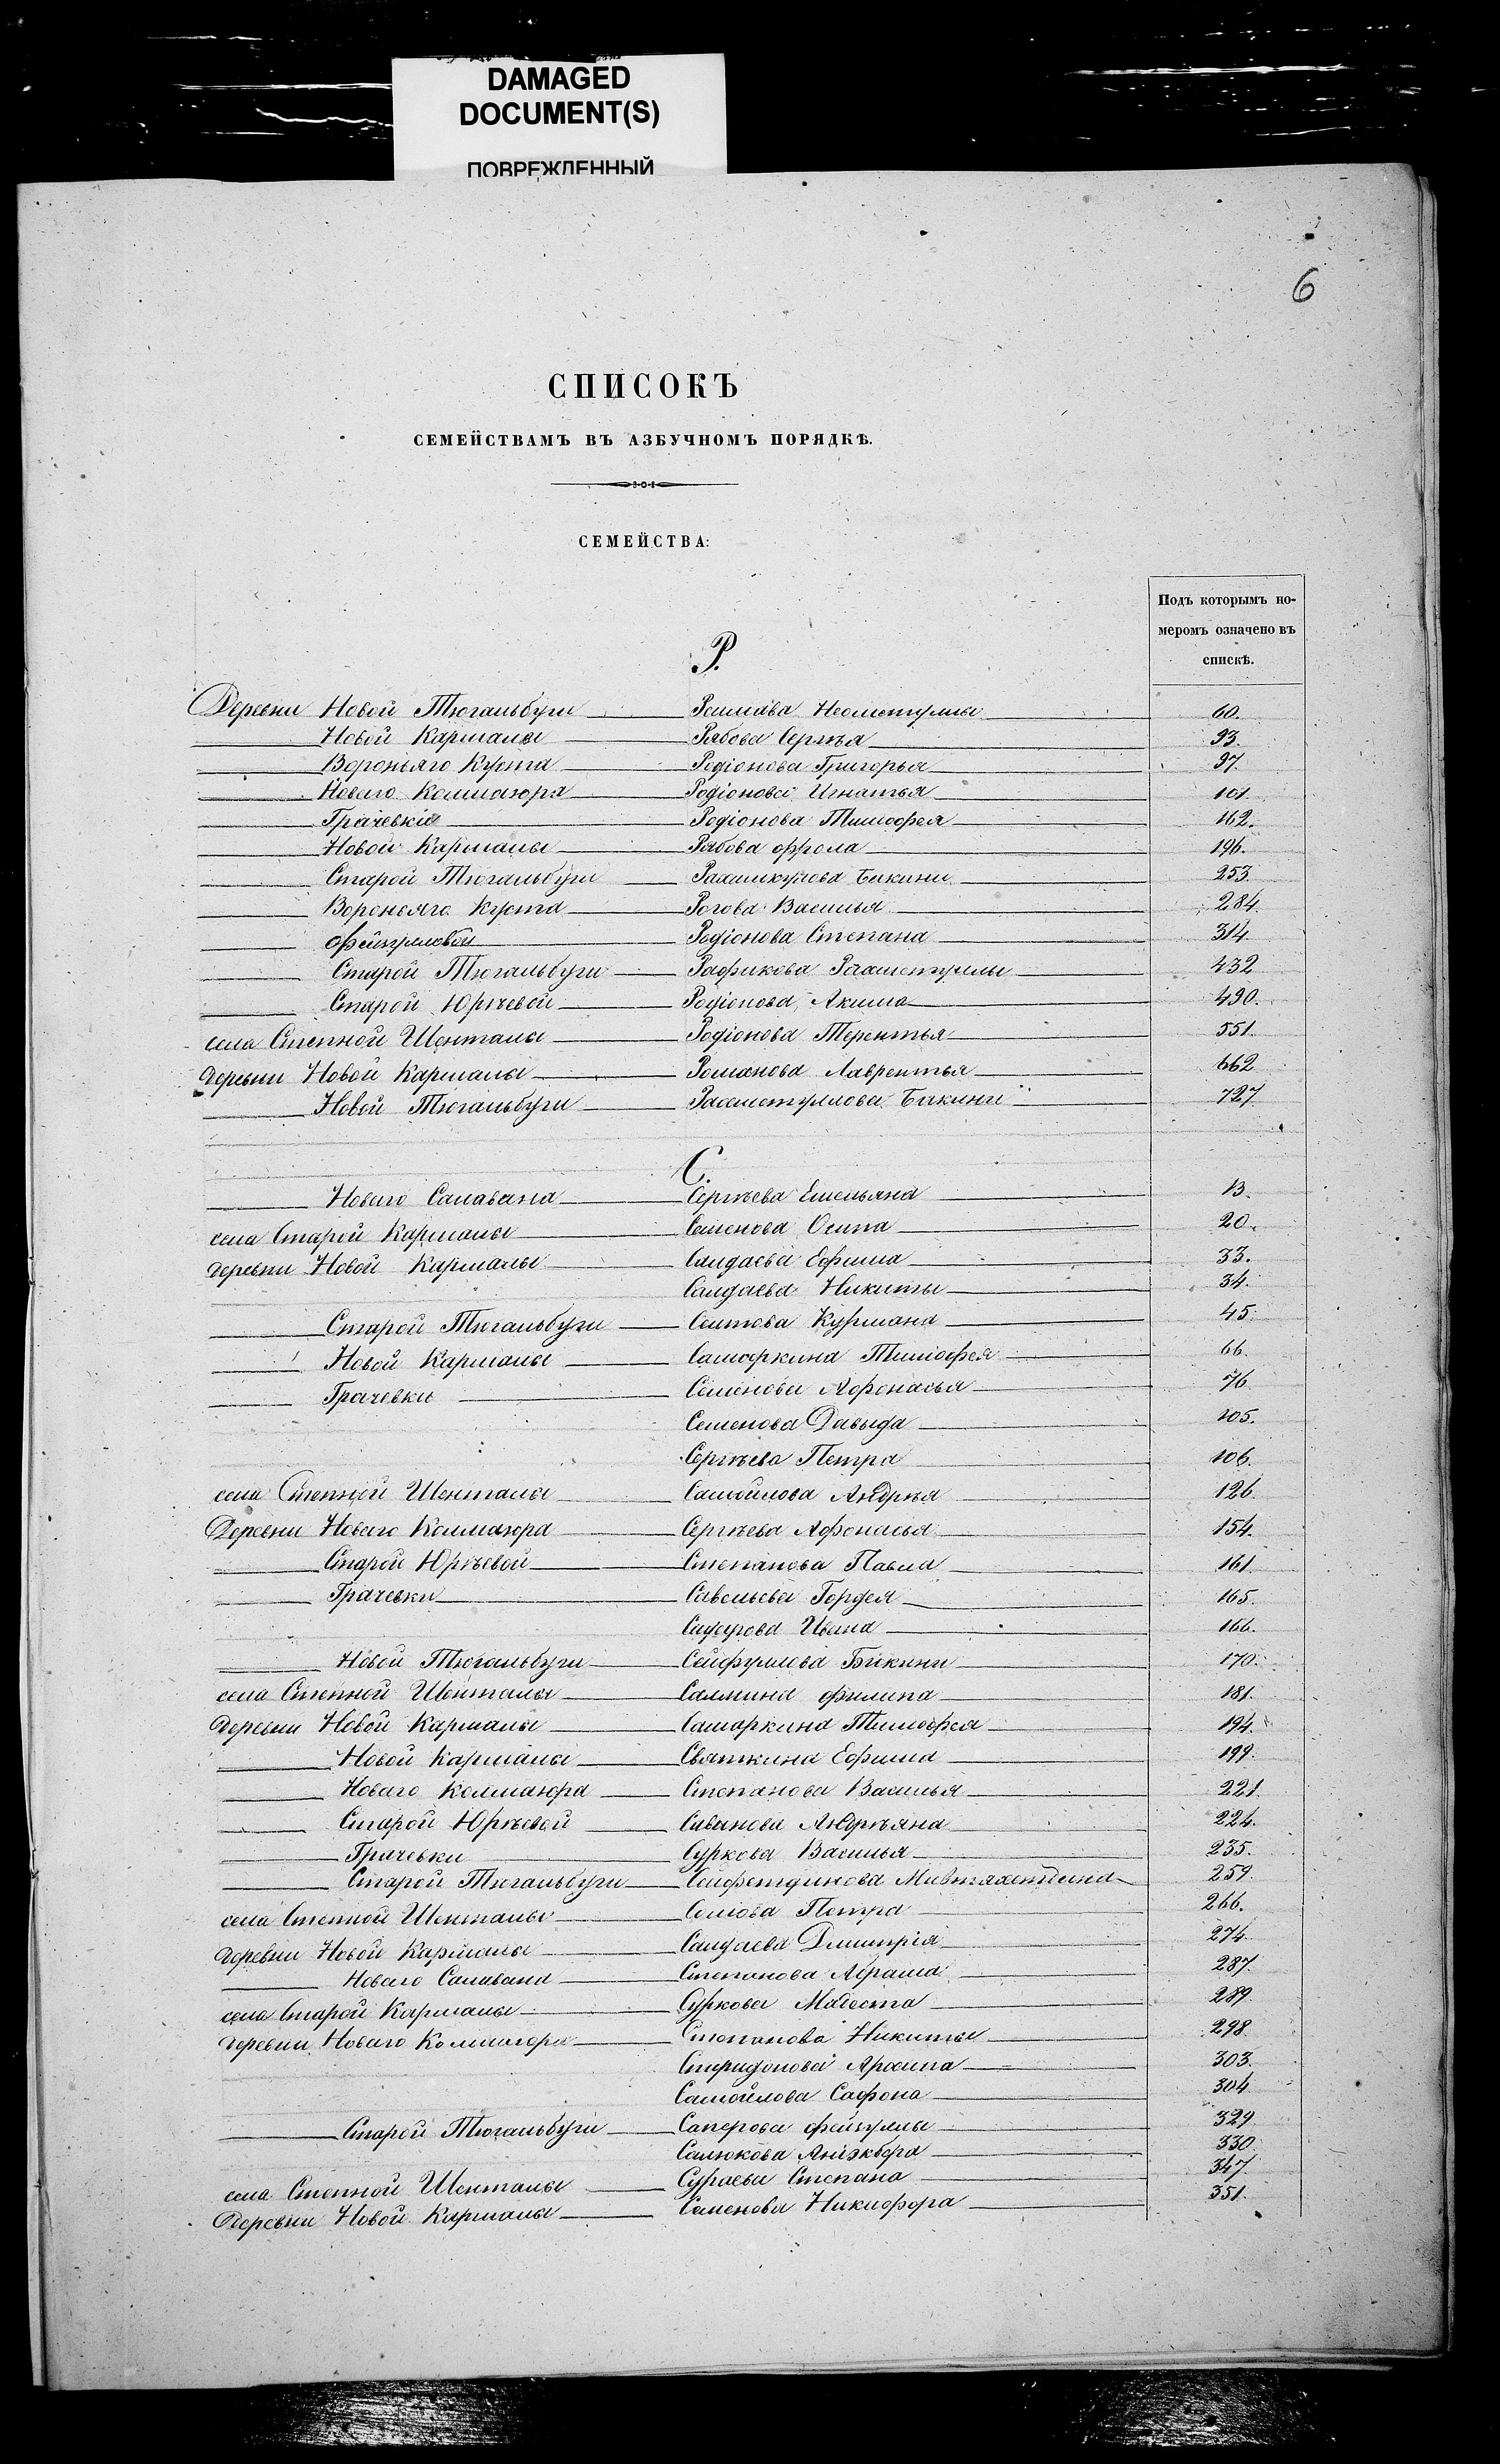 DAMAGED
DOCUMENT(S)
ПОВРЕЖДЕННЫЙ
6
СПИСОКЪ
СЕМЕЙСТВАМЪ ВЪ АЗБУЧНОМЪ ПОРЯДКѢ.
СЕМЕЙСТВА:
Подъ которымъ но-
меромъ означено въ
спискѣ.
Р.
Деревни Новой Тюгальбуги 60.
Новой Кармалы Рябова Сергѣя 93.
Вороньяго Куста Родіонова Григорья 97.
Новаго Колмаюра Родіонова Игнатья 101
Грачевки Родіонова Тимофея 162.
Новой Кармалы Рябова Фрола 196.
Старой Тюгальбуги Рахмкулова Бикини 253
Вороньяго Куста Рогова Василья 284
Фейзуловой Родіонова Степана 314
Старой Тюгальбуги Рафикова Рахметуллы 432
Старой Юрѣевой Родіонова Акима 490.
села Степной Шенталы Родіонова Терентья 551.
Деревни Новой Кармалы Романова Лаврентья 662
Новой Тюгальбуги Рахметуллова Бикини 727
С.
Новаго Салавана Сергѣева Емельяна 13.
села Старой Кармалы Семенова Осипа 20.
деревни Новой Кармалы Салдаева Ефима 33.
Салдаева Никиты 34.
Старой Тюгальбуги Сеитова Курмана 45.
Новой Кармалы Самаркина Тимофея 66.
Грачевки Семенова Афонасья 76
Семенова Давыда 105.
Сергѣева Петра 106.
села Степной Шенталы Самойлова Андрѣя 126.
Деревни Новаго Колмаюра Сергѣева Афонасья 154.
Старой Юрѣевой Степанова Павла 161.
Грачевки Савельева Гордея 165.
Сидорова Ивана 166.
Новой Тюгальбуги Сейфуллова Бикини 170.
села Степной Шенталы Салмина Филипа 181.
Деревни Новой Кармалы Самаркина Тимофея 194.
Новой Кармалы Святкина Ефима 199.
Новаго Колмаюра Степанова Василья 221.
Старой Юрѣевой Сиванова Андрѣяна 224.
Грачевки Суркова Василья 235.
Старой Тюгальбуги Сейфетдинова 259.
села Степной Шенталы Сомова Петра 266.
деревни Новой Кармалы Салдаева Дмитрія 274.
Новаго Салавана Степанова Абрама 287.
села Старой Кармалы Суркова Модеста 289.
деревни Новаго Колмаюра Степанова Никиты 298.
Спиридонова Архипа 303.
Самойлова Сафона 304
Старой Тюгальбуги Саперова Фейзуллы 329
Салюкова 330.
села Степной Шенталы Сураева Степана 347
Деревни Новой Кармалы Семенова Никифора 351.